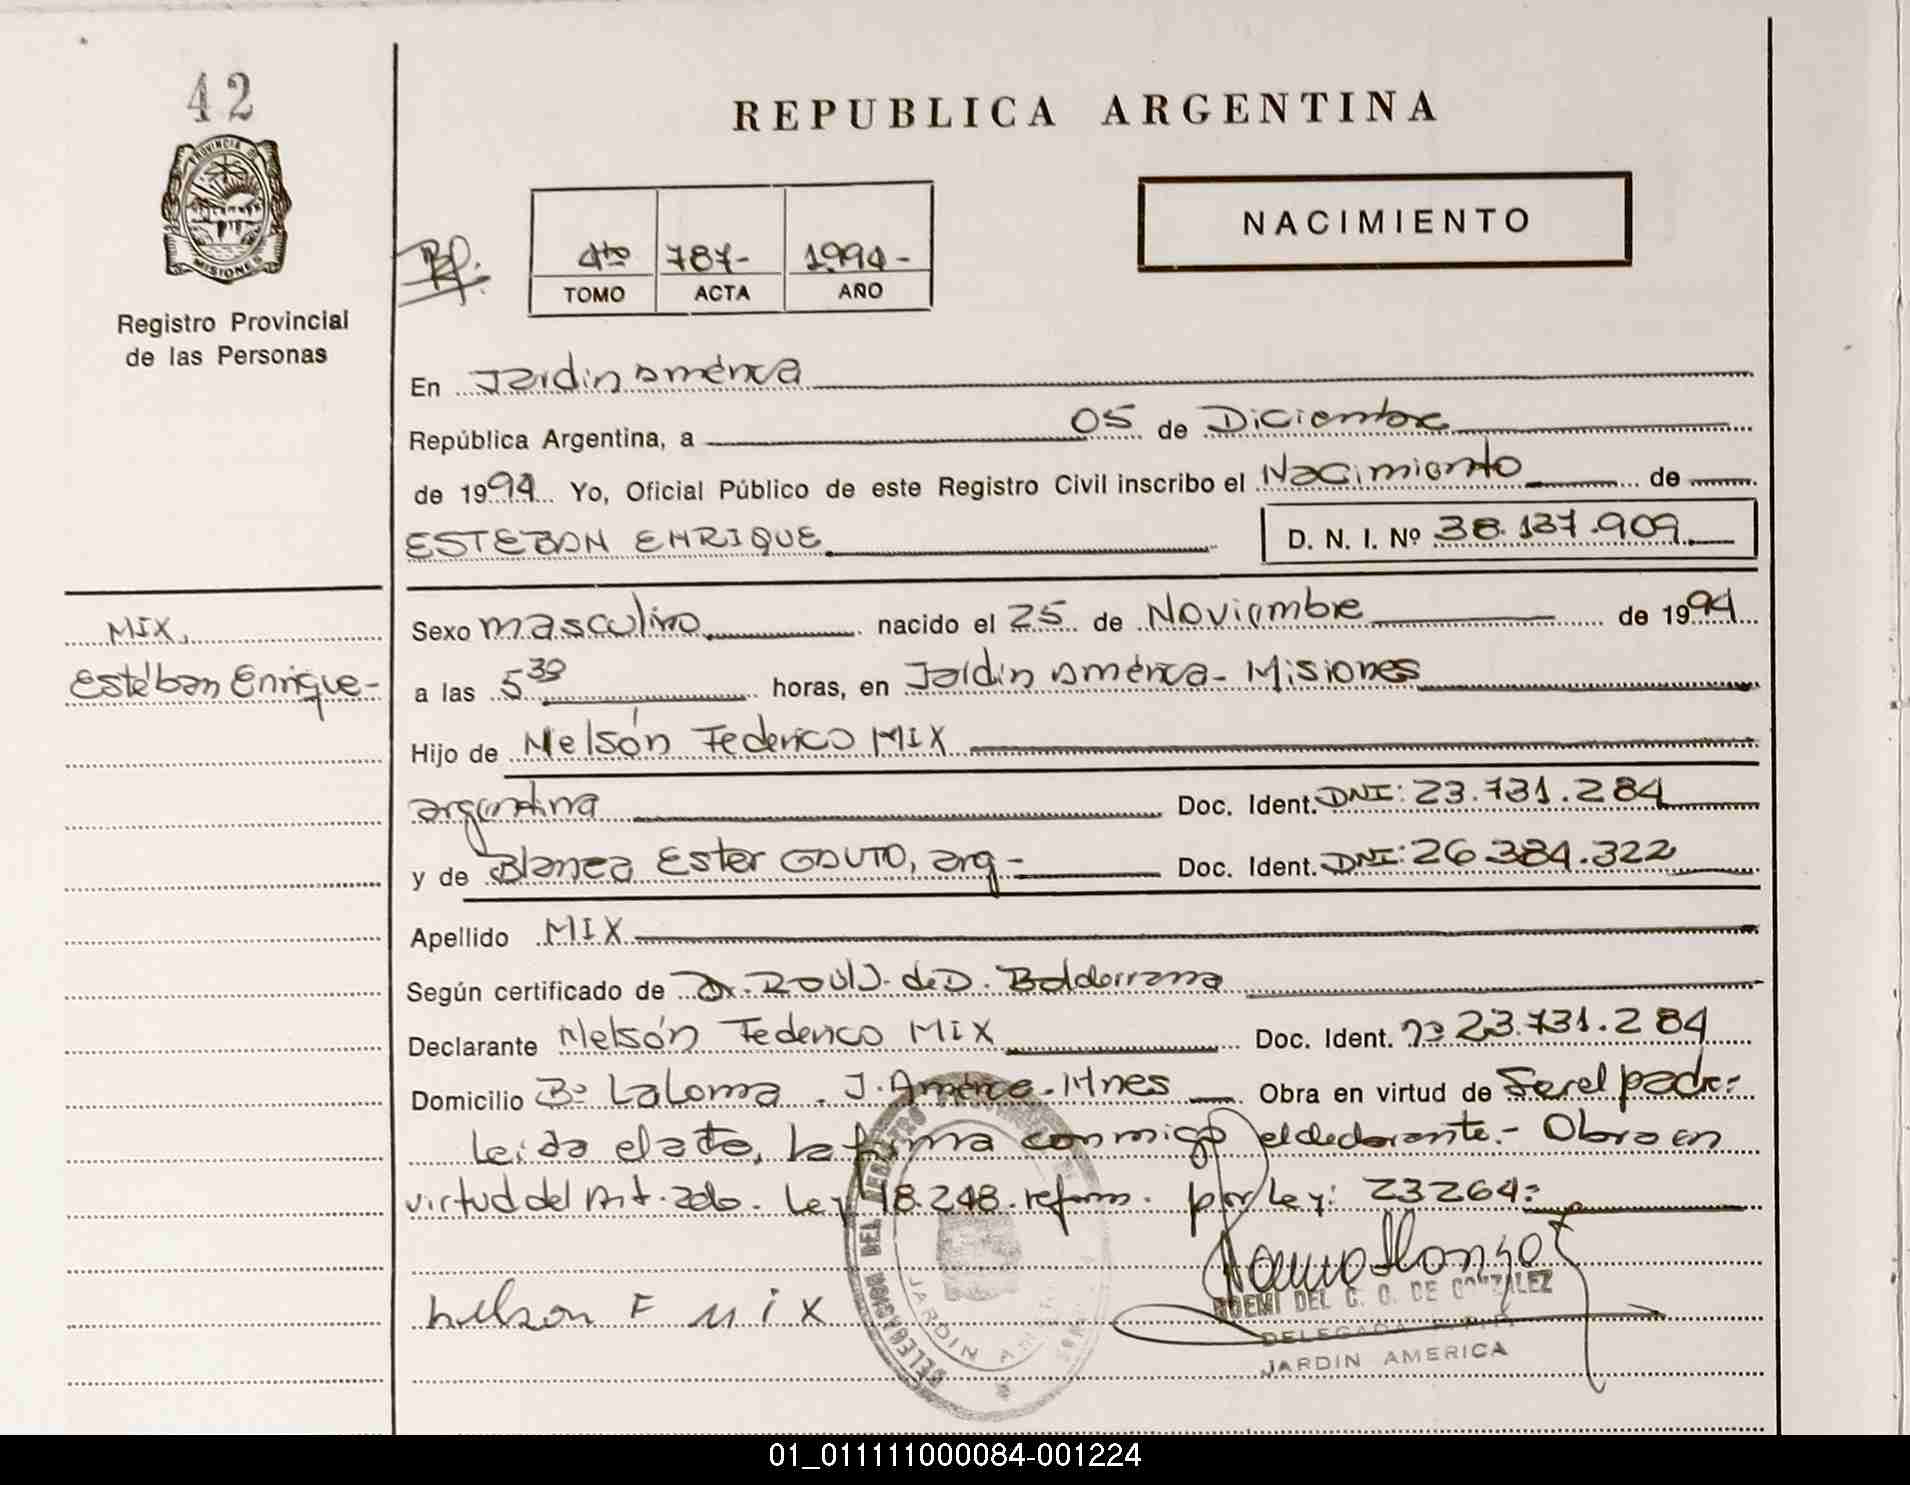 42
REPUBLICA ARGENTINA
PROVINCIA DE
MISIONES
Registro Provincial
de las Personas
4to 787- 1994-
TOMO ACTA AÑO
NACIMIENTO
En Jardin América
República Argentina, a 05 de Diciembre
de 1994 Yo, Oficial Público de este Registro Civil inscribo el Nacimiento de
ESTEBAN ENRIQUE D. N. I. Nº 38.137.909
MIX,
Estéban Enrique-
Sexo masculino nacido el 25 de Noviembre de 1994
a las 5 30 horas, en Jardin América - Misiones
Hijo de Nelsón Federico MIX
argentina Doc. Ident. DNI: 23.731.284
y de Blanca Ester GAUTO, arg- Doc. Ident. DNI: 26.384.322
Apellido MIX
Según certificado de Dr. Raúl J. de D. Balderrama
Declarante Nelsón Federico MIX Doc. Ident. nº 23.731.284
Domicilio Bº La Loma . J. América - Mnes Obra en virtud de Ser el padre
Leida el acta, la firma conmigo el declarante.- Obra en
virtud del Art. 2do. Ley 18.248. reform. por Ley: 23264:
nelson F MIX
DELEGACION DEL REGISTRO
JARDIN AMERICA
NOEMI DEL C. O. DE GONZALEZ
DELEGADA R.P.P.
JARDIN AMERICA
01_011111000084-001224